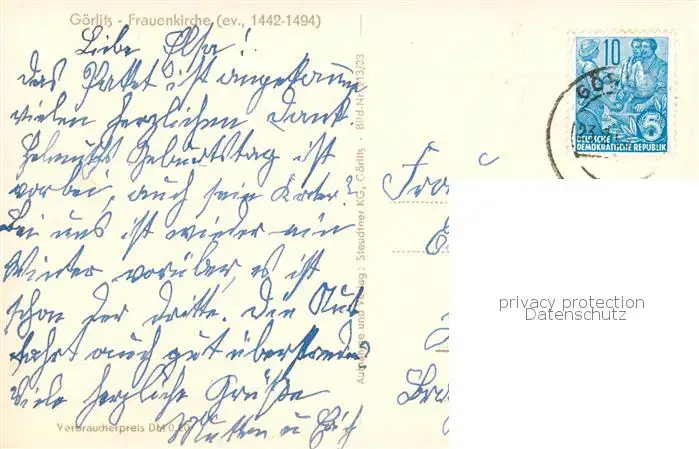 Görlitz - Frauenkirche (ev., 1442-1494)
Liebe Elsa!
das Paket ist angekommen
vielen herzlichen Dank
Helmuts Geburtstag ist
vorbei, auch sein Kater?
Bei uns ist wieder ein
Winter vorüber, es ist
schon der dritte. Die Aus
fahrt auch gut überstanden
Viele herzliche Grüße
Mutter u
Verbraucherpreis DM 0,20
Aufnahme und Verlag: Steudtner KG, Görlitz - Bild-Nr. 213/33
10
5
DEUTSCHE
DEMOKRATISCHE REPUBLIK
Frau
privacy protection
Datenschutz